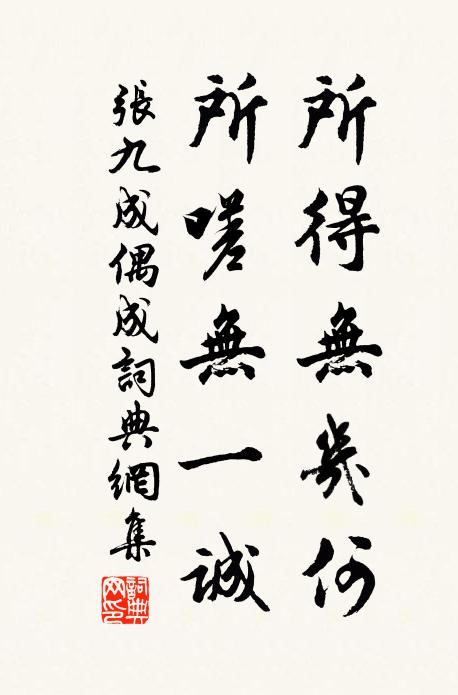 所得無幾何
所嗟無一誠
張九成偶成詞典網集
詞典網印